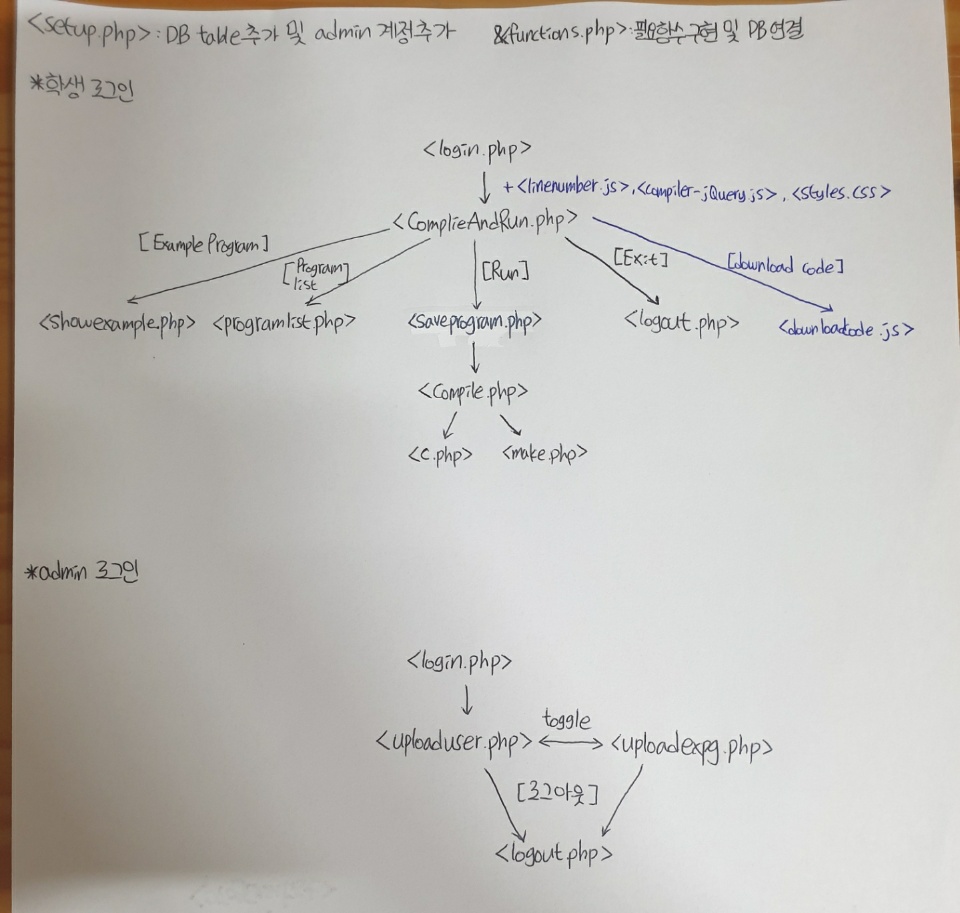 <setup.php>: DB table추가 및 admin 계정추가 &functions.php>:필요함수구현 및 DB연결
*학생 로그인
<login.php>
+<linenumber.js>,<compiler-jQuery.js>, <styles.css>
<ComplieAndRun.php>
[Example Program] [Program list] [Run] [Exit] [download code]
<showexample.php> <programlist.php> <saveprogram.php> <logout.php> <downloadcode.js>
<Compile.php>
<c.php> <make.php>
*admin 로그인
<login.php>
toggle
<uploaduser.php> <uploadexpg.php>
[로그아웃]
<logout.php>